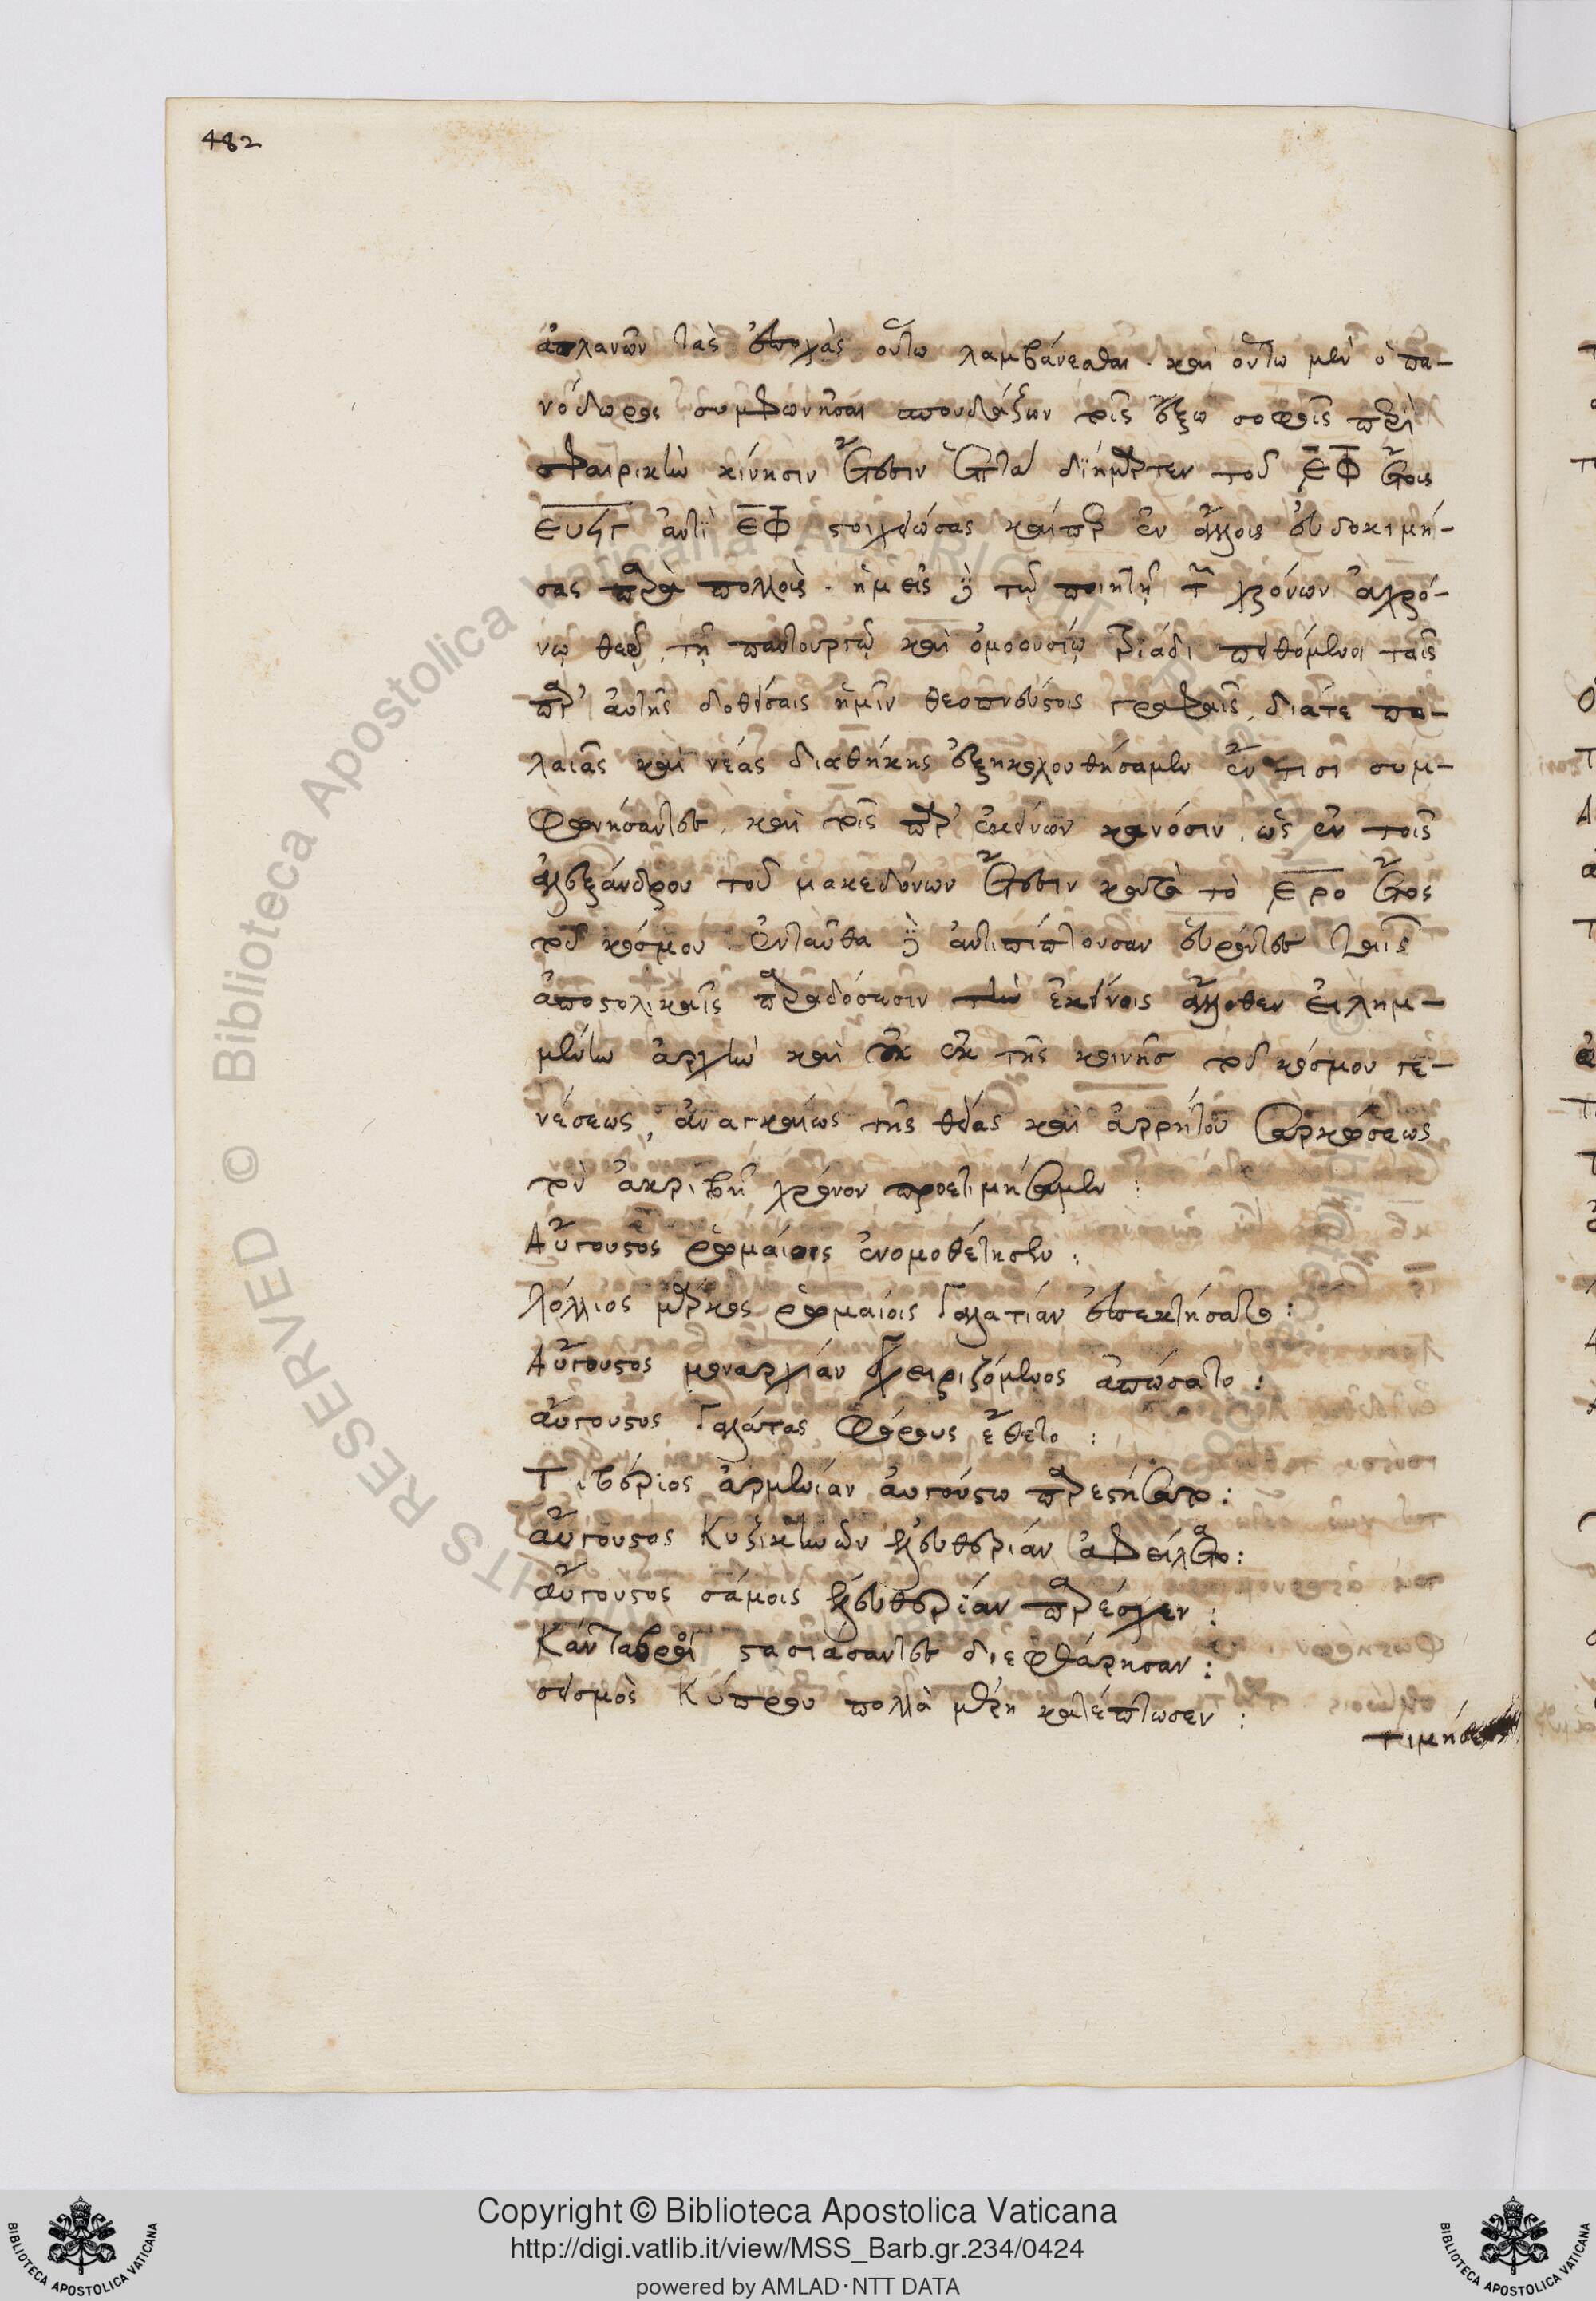 482
ἀπλανῶν τὰς ἐποχὰς οὕτω λαμβάνεσθαι. καὶ οὕτω μὲν ὁ πα-
νόδωρος συμφωνῆσαι σπουδάζων τοῖς ἔξω σοφοῖς περὶ
σφαιρικὴν κίνησιν ἔτεσιν ἑπτὰ διήμαρτεν τοῦ ΕΦ ἔτους
ευϟγ ἀντὶ ΕΦ στοιχειώσας καίπερ ἐν ἄλλοις εὐδοκιμή-
σας παρὰ πολλοῖς. ἡμεῖς δὲ τῷ ποιητῇ τῶν χρόνων ἀχρό-
νῳ θεῷ, τῇ παντουργῷ καὶ ὁμοουσίῳ τριάδι πειθόμενοι ταῖς
παρ' αὐτῆς δοθείσαις ἡμῖν θεοπνεύστοις γραφαῖς, διά τε πα-
λαιᾶς καὶ νέας διαθήκης ἐξηκολουθήσαμεν ἔν τισι συμ-
φωνήσαντες, καὶ τοῖς παρ' ἐκείνων κανόσιν, ὡς ἐν τοῖς
ἀλεξάνδρου τοῦ μακεδόνων ἔτεσιν κατὰ τὸ ερο ἔτος
τοῦ κόσμου. ἐνταῦθα δὲ ἀντιπίπτουσαν εὑρόντες ταῖς
ἀποστολικαῖς παραδόσεσιν τὴν ἐκείνοις ἄλλοθεν εἰλημ-
μένην ἀρχὴν καὶ οὐκ ἐκ τῆς κοινῆς τοῦ κόσμου γε-
νέσεως, ἀναγκαίως τῆς θείας καὶ ἀρρήτου σαρκώσεως
τὸν ἀκριβῆ χρόνον προετιμήσαμεν :
Αὔγουστος ῥωμαίοις ἐνομοθέτησεν :
λόλλιος μάρκος ῥωμαίοις Γαλατίαν ἐπεκτήσατο :
Αὔγουστος μοναρχίαν ἐγχειριζόμενος ἀπώσατο :
αὔγουστος Γαλάταις φόρους ἔθετο :
Τιβέριος ἀρμενίαν αὐγούστω παρεστήσατο :
αὔγουστος Κυζικηνῶν ἐλευθερίαν ἀφείλετο :
αὔγουστος σάμοις ἐλευθερίαν παρέσχεν :
Κάνταβροι στασιάσαντες διεφθάρησαν :
σεισμὸς Κύπρου πολλὰ μέρη κατέπτωσεν :
Copyright © Biblioteca Apostolica Vaticana
http://digi.vatlib.it/view/MSS_Barb.gr.234/0424
powered by AMLAD·NTT DATA